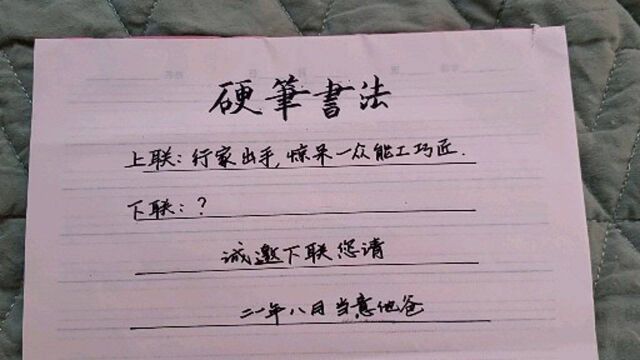 硬筆書法
上联：行家出手，惊呆一众能工巧匠．
下联：？
诚邀下联您请
二一年八月当意他爸